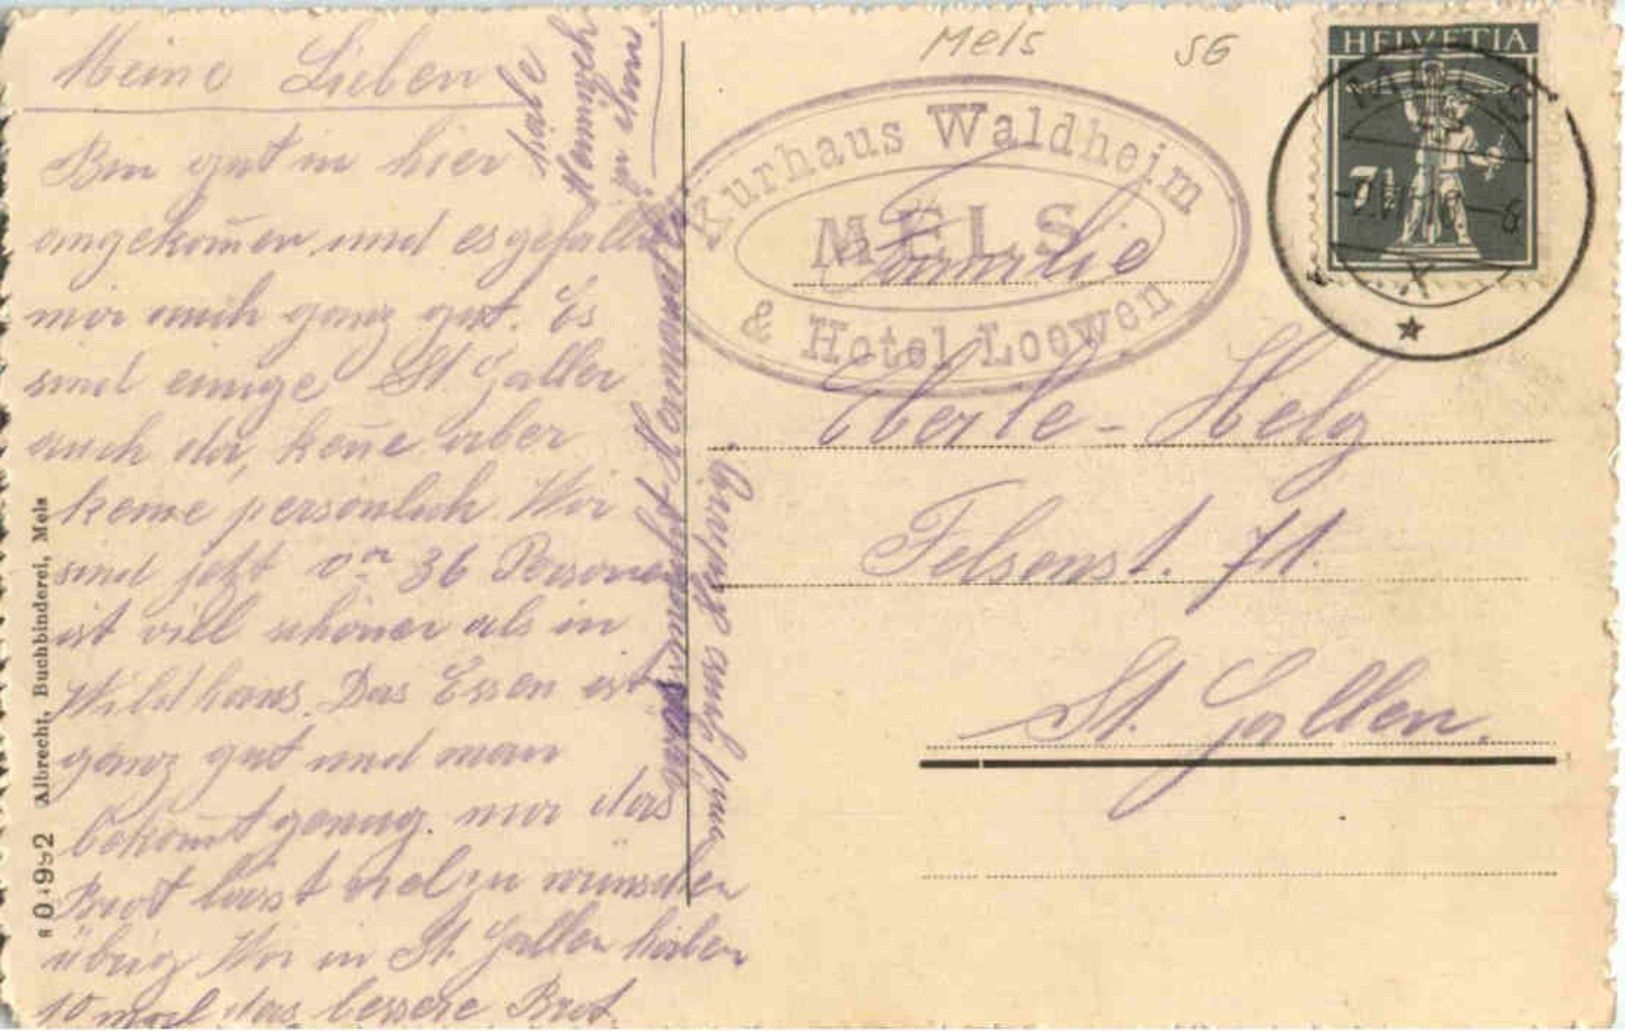 Meine Lieben
Bin gut in hier
angekom̅en und es gefällt
mir auch ganz gut. Es
sind einige St Galler
auch da, ken̅e aber
keine persönlich. Wir
sind jetzt 36 Personen
ist vill schöner als in
Wildhaus. Das Essen ist
ganz gut und man
bekom̅t genug. nur das
Brot lässt viel zu wünschen
übrig Wir in St. Gallen haben
10 mal das bessere Brot.
Mels SG
Kurhaus Waldheim
MELS
& Hotel Loewen
HELVETIA
7½
MELS
Familie
Eberle-Helg
Felsenst. 71.
St. Gallen.
80992 Albrecht, Buchbinderei, Mels